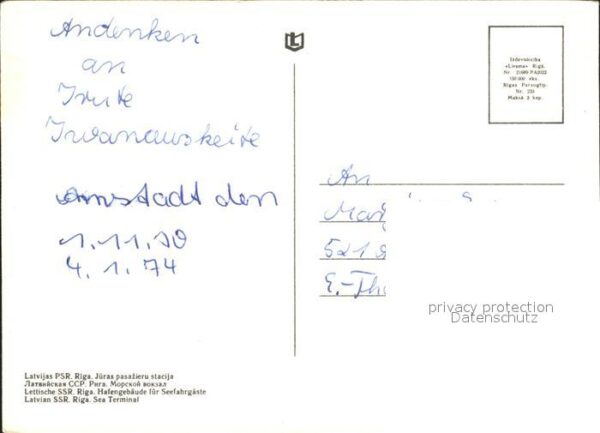 Andenken
an
Irute
Iwanauskeite
Arnstadt den
1.11.70
4.1.74
Izdevniecība
«Liesma» Rīgā.
Maksā 3 kap.
An
521
E.-Th
privacy protection
Datenschutz
Latvijas PSR. Rīga. Jūras pasažieru stacija
Латвийская ССР. Рига. Морской вокзал
Lettische SSR. Riga. Hafengebäude für Seefahrgäste
Latvian SSR. Riga. Sea Terminal